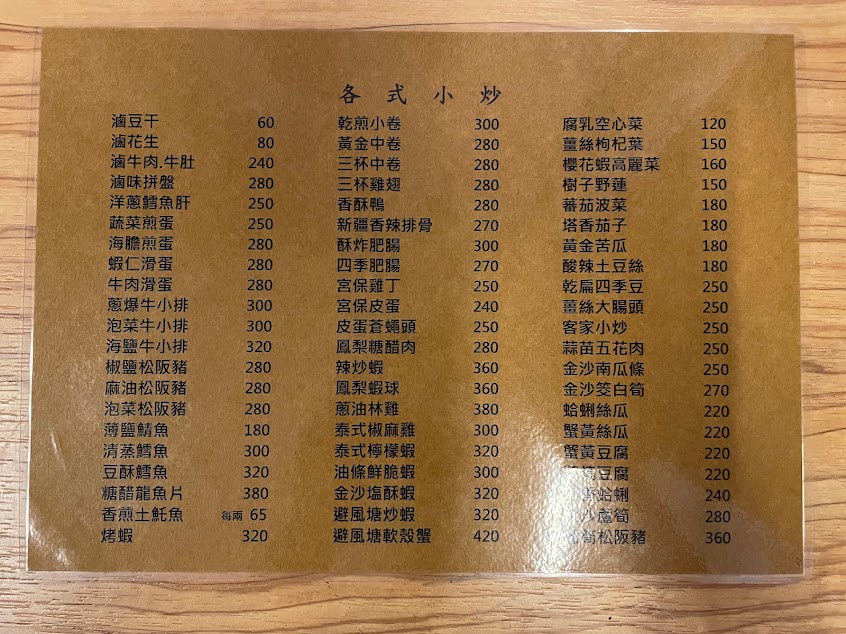 各式小炒
滷豆干 60
滷花生 80
滷牛肉.牛肚 240
滷味拼盤 280
洋蔥鱈魚肝 250
蔬菜煎蛋 250
海膽煎蛋 280
蝦仁滑蛋 280
牛肉滑蛋 280
蔥爆牛小排 300
泡菜牛小排 300
海鹽牛小排 320
椒鹽松阪豬 280
麻油松阪豬 280
泡菜松阪豬 280
薄鹽鯖魚 180
清蒸鱈魚 300
豆酥鱈魚 320
糖醋龍魚片 380
香煎土魠魚 每兩 65
烤蝦 320
乾煎小卷 300
黃金中卷 280
三杯中卷 280
三杯雞翅 280
香酥鴨 280
新疆香辣排骨 270
酥炸肥腸 300
四季肥腸 270
宮保雞丁 250
宮保皮蛋 240
皮蛋蒼蠅頭 250
鳳梨糖醋肉 280
辣炒蝦 360
鳳梨蝦球 360
蔥油林雞 380
泰式椒麻雞 300
泰式檸檬蝦 320
油條鮮脆蝦 300
金沙塩酥蝦 320
避風塘炒蝦 320
避風塘軟殼蟹 420
腐乳空心菜 120
薑絲枸杞葉 150
櫻花蝦高麗菜 160
樹子野蓮 150
蕃茄波菜 180
塔香茄子 180
黃金苦瓜 180
酸辣土豆絲 180
乾扁四季豆 250
薑絲大腸頭 250
客家小炒 250
蒜苗五花肉 250
金沙南瓜條 250
金沙筊白筍 270
蛤蜊絲瓜 220
蟹黃絲瓜 220
蟹黃豆腐 220
豆腐 220
蛤蜊 240
蘆筍 280
松阪豬 360